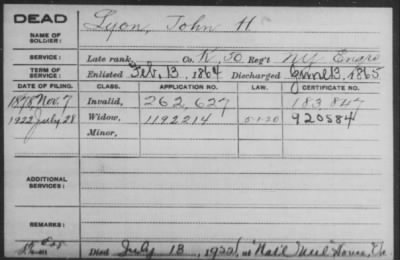 DEAD
Lyon, John H.
NAME OF SOLDIER:
SERVICE: Late rank, Co. K, 50 Reg't NY Engrs
TERM OF SERVICE: Enlisted Feb. 13, 1864 Discharged June 13, 1865
DATE OF FILING. CLASS. APPLICATION NO. LAW. CERTIFICATE NO.
1878 Nov. 7 Invalid, 262,627 183,847
1922 July 28 Widow, 1192214 5-1-20 920584
Minor,
ADDITIONAL SERVICES:
REMARKS:
Died July 18, 1922, at Nat'l Home,